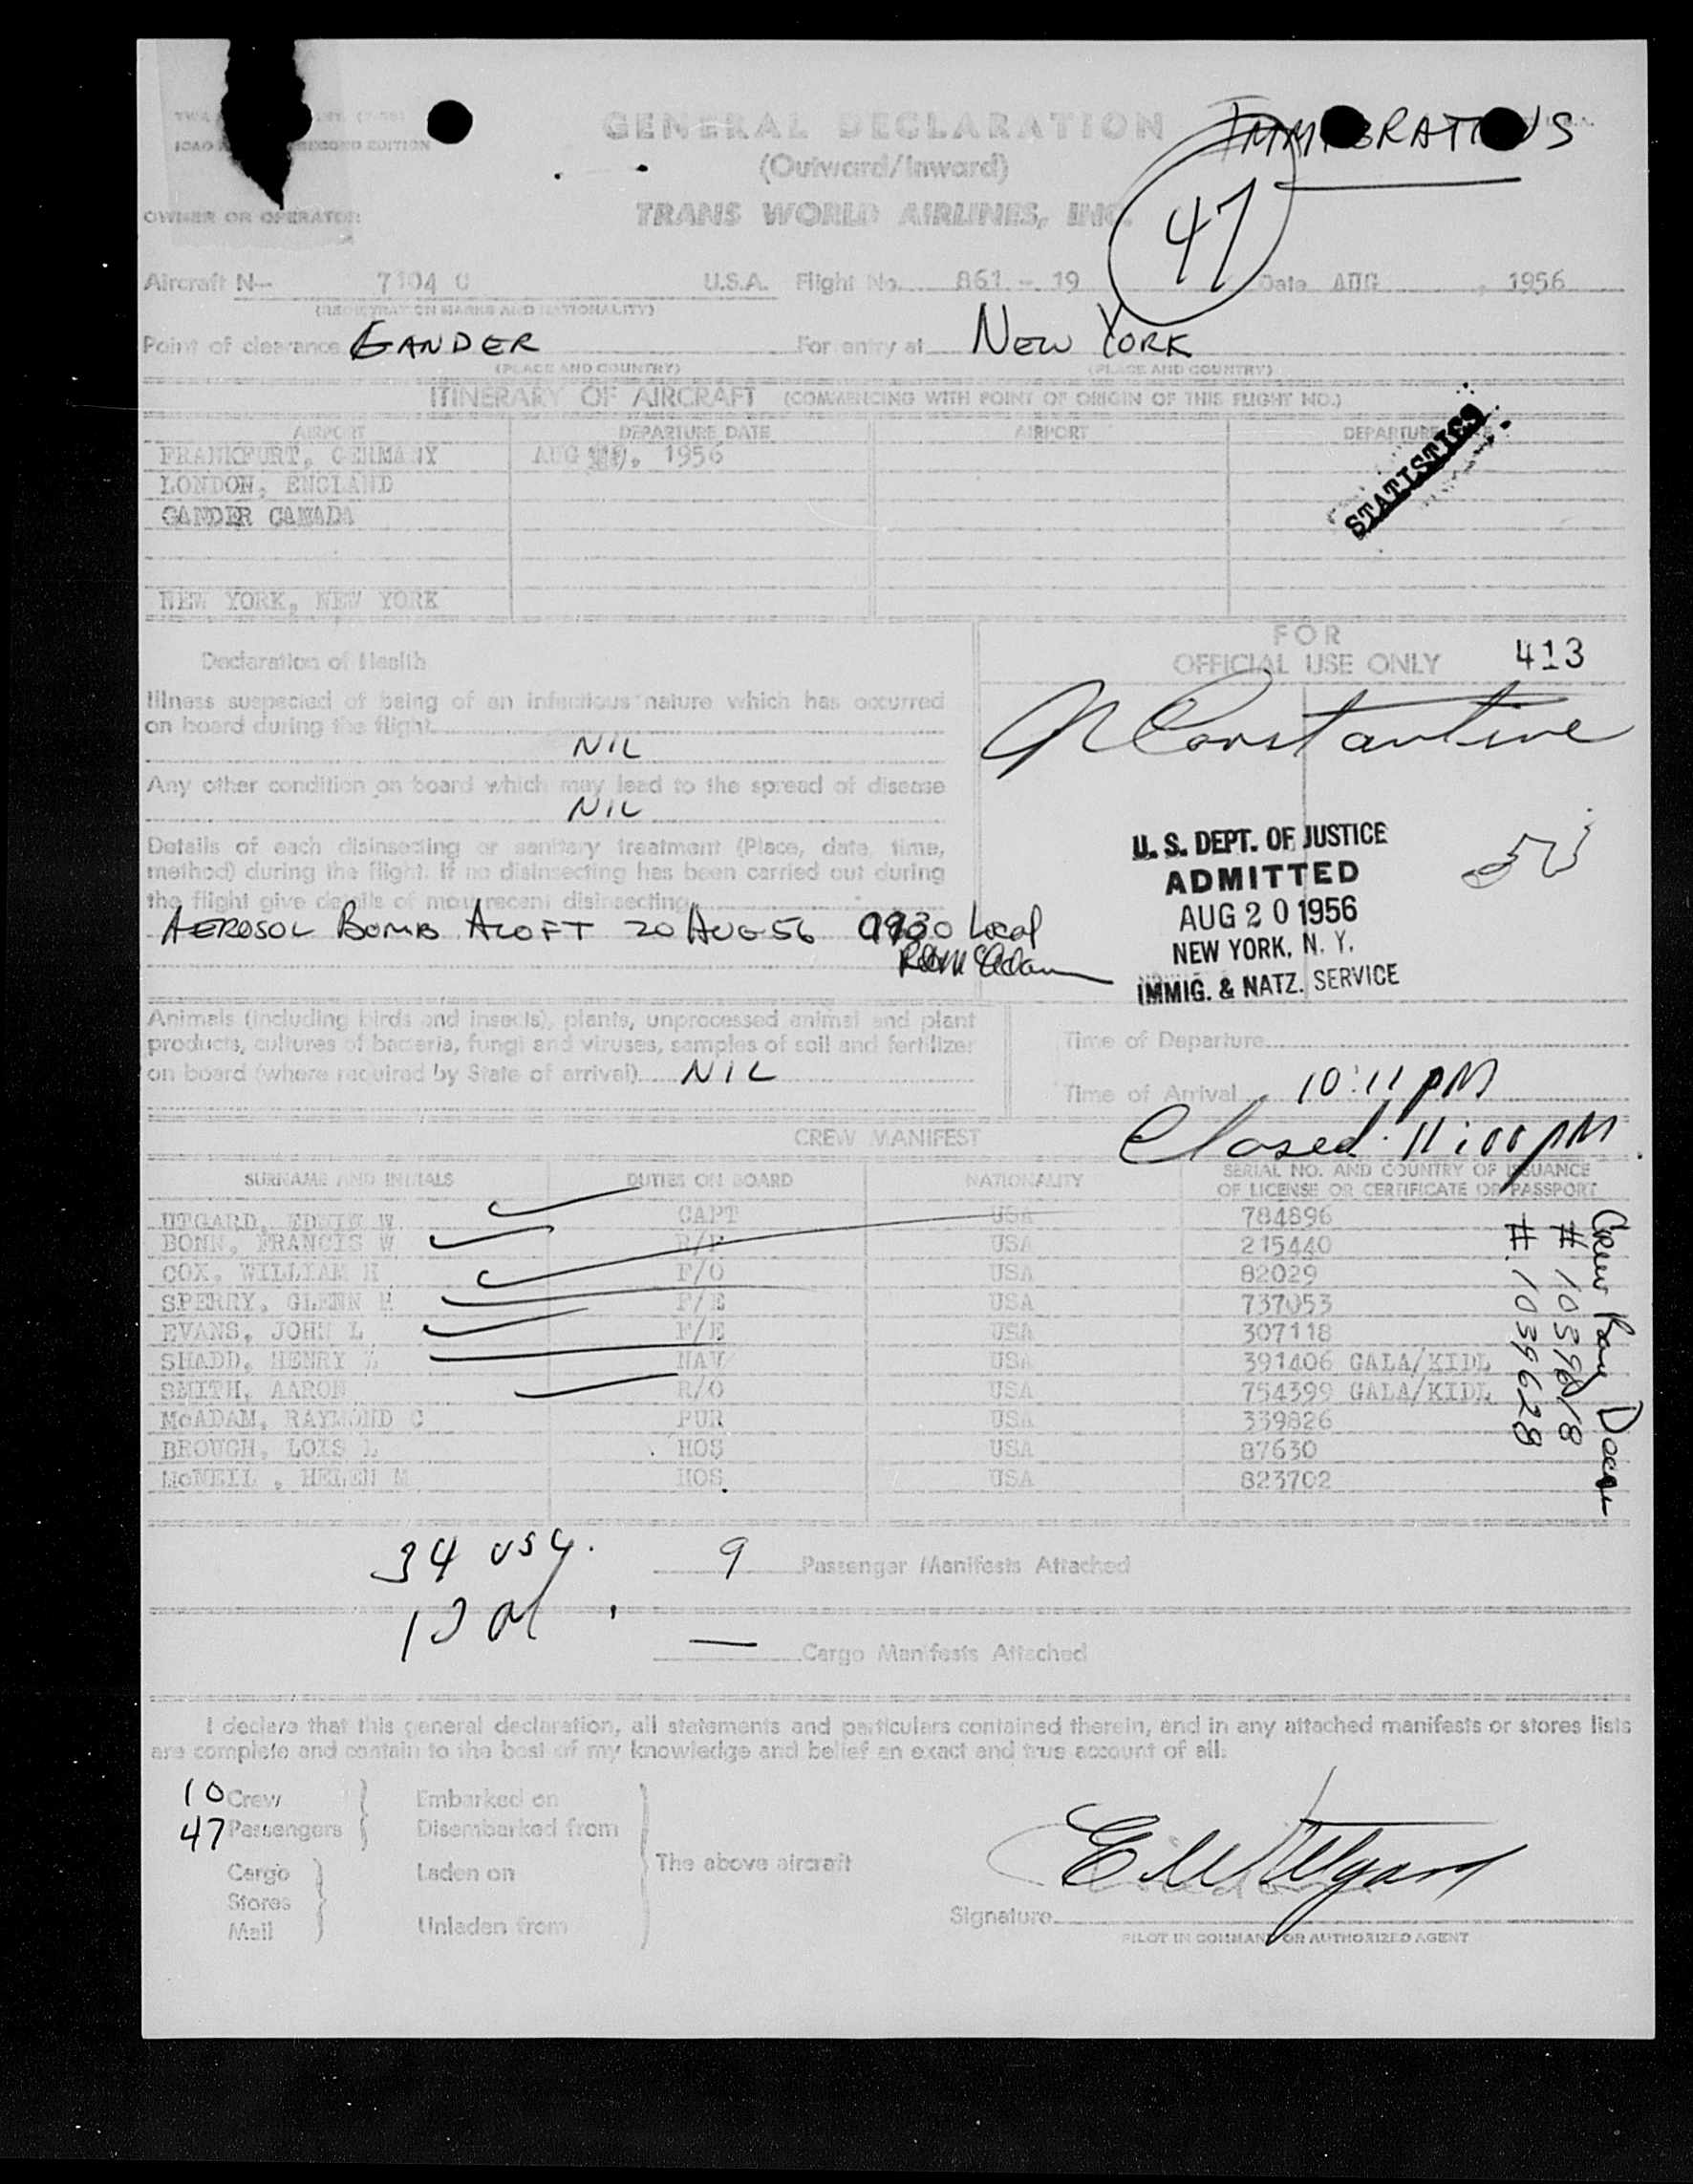 IMMIGRATIONS
GENERAL DECLARATION
SECOND EDITION
(Outward/Inward)
OWNER OR OPERATOR
TRANS WORLD AIRLINES, INC.
47
Aircraft N- 7104 C U.S.A. Flight No. 861 - 19 Date AUG , 1956
(REGISTRATION MARKS AND NATIONALITY)
Point of clearance GANDER For entry at NEW YORK
(PLACE AND COUNTRY) (PLACE AND COUNTRY)
ITINERARY OF AIRCRAFT (COMMENCING WITH POINT OF ORIGIN OF THIS FLIGHT NO.)
AIRPORT DEPARTURE DATE AIRPORT DEPARTURE
FRANKFURT, GERMANY AUG , 1956
LONDON, ENGLAND
GANDER CANADA
STATISTICS
NEW YORK, NEW YORK
FOR
OFFICIAL USE ONLY 413
Declaration of Health
Illness suspected of being of an infectious nature which has occurred
on board during the flight
NIL
Constantine
Any other condition on board which may lead to the spread of disease
NIL
Details of each disinsecting or sanitary treatment (Place, date, time,
method) during the flight. If no disinsecting has been carried out during
the flight give details of most recent disinsecting
AEROSOL BOMB ALOFT 20 AUG 56 0930 Local
R McAdam
U. S. DEPT. OF JUSTICE
ADMITTED
AUG 20 1956
NEW YORK, N. Y.
IMMIG. & NATZ. SERVICE
Animals (including birds and insects), plants, unprocessed animal and plant
products, cultures of bacteria, fungi and viruses, samples of soil and fertilizer
on board (where required by State of arrival) NIL
Time of Departure
Time of Arrival 10:11 PM
Closed 11:00 PM
CREW MANIFEST
SURNAME AND INITIALS DUTIES ON BOARD NATIONALITY SERIAL NO. AND COUNTRY OF ISSUANCE
OF LICENSE OR CERTIFICATE OR PASSPORT
UTGARD, EDWIN W. CAPT USA 784896
BONN, FRANCIS W USA 215440
COX, WILLIAM H F/O USA 82029
SPERRY, GLENN F/E USA 737053
EVANS, JOHN L F/E USA 307118
SHADD, HENRY NAV USA 391406 GALA/KIDL
SMITH, AARON R/O USA 754399 GALA/KIDL
McADAM, RAYMOND C PUR USA 339826
BROUCH, LOIS L HOS USA 87630
McNEIL , HELEN M HOS USA 823702
Crew
# 1039628
34 USC.
9 Passenger Manifests Attached
— Cargo Manifests Attached
I declare that this general declaration, all statements and particulars contained therein, and in any attached manifests or stores lists
are complete and contain to the best of my knowledge and belief an exact and true account of all:
10 Crew Embarked on
47 Passengers Disembarked from
The above aircraft
Cargo Laden on
Stores
Mail Unladen from
E W Utgard
Signature
PILOT IN COMMAND OR AUTHORIZED AGENT